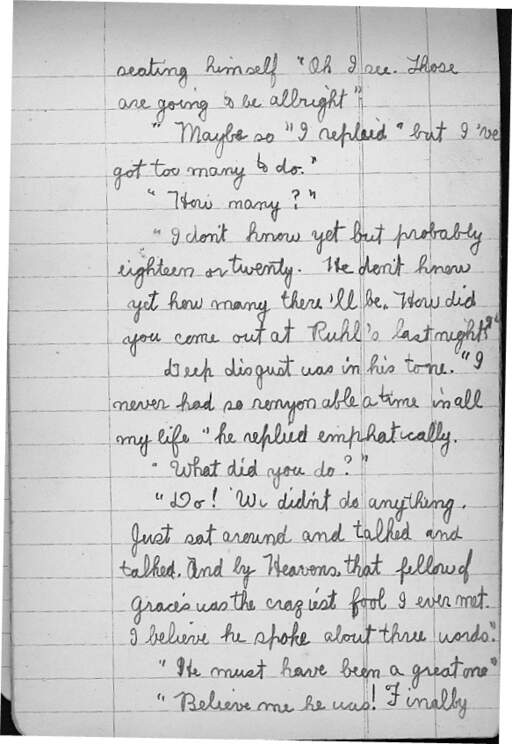 seating himself "Oh I see. Those
are going to be allright"
" Maybe so "I replaid" but I 've
got too many to do."
" How many ? "
" I don't know yet but probably
eighteen or twenty. We don't know
yet how many there 'll be. How did
you come out at Ruhl's last night?"
Deep disgust was in his tone. "I
never had so a time in all
my life " he replied emphatically.
" What did you do ? "
" Do ! We didn't do anything.
Just sat around and talked and
talked. And by Heavens, that fellow of
Grace's was the craziest fool I ever met.
I believe he spoke about three words."
" He must have been a great one"
" Believe me he was! Finally